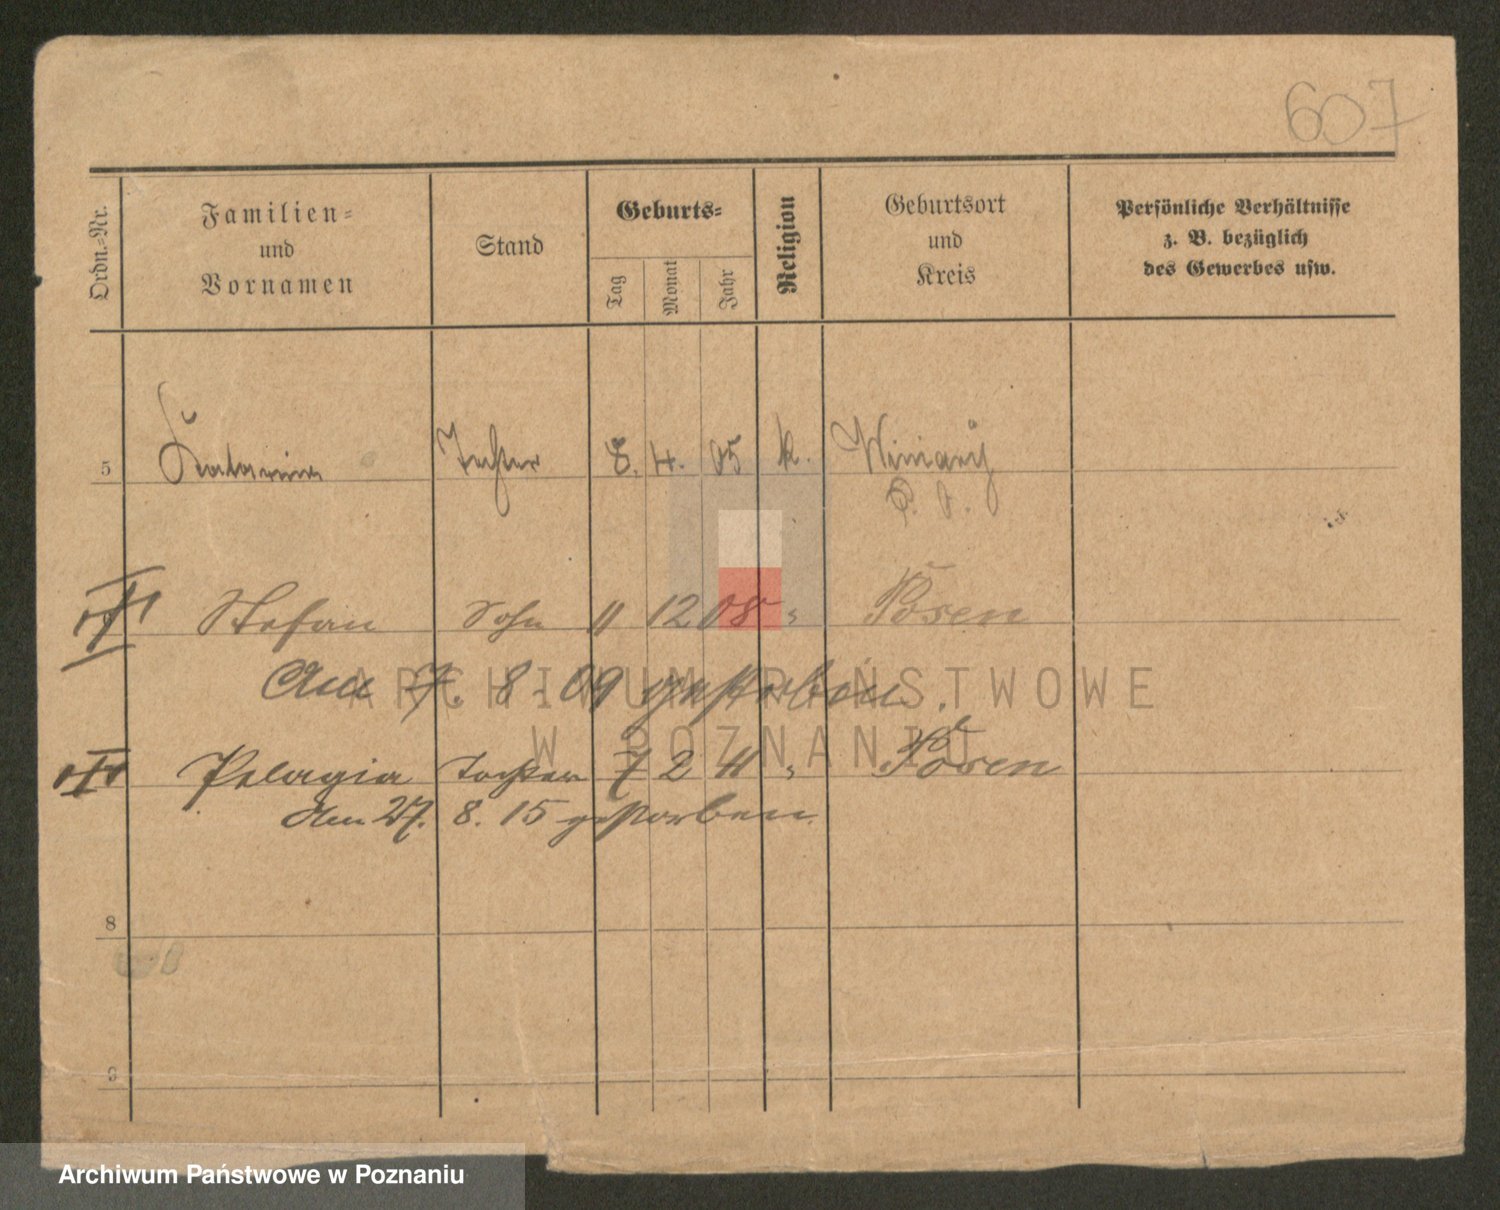 607
Ordn.-Nr.
Familien-
und
Vornamen
Stand
Geburts-
Tag
Monat
Jahr
Religion
Geburtsort
und
Kreis
Persönliche Verhältnisse
z. B. bezüglich
des Gewerbes usw.
5 Katarina Tochter 8. 4. 05 k. Winiary
P. O.
Stefan Sohn 11 12 08 " Posen
Am 7. 8. 09 gestorben.
Pelagia Tochter 7 2 11 " Posen
den 27. 8. 15 gestorben.
8
9
ARCHIWUM PAŃSTWOWE
W POZNANIU
Archiwum Państwowe w Poznaniu